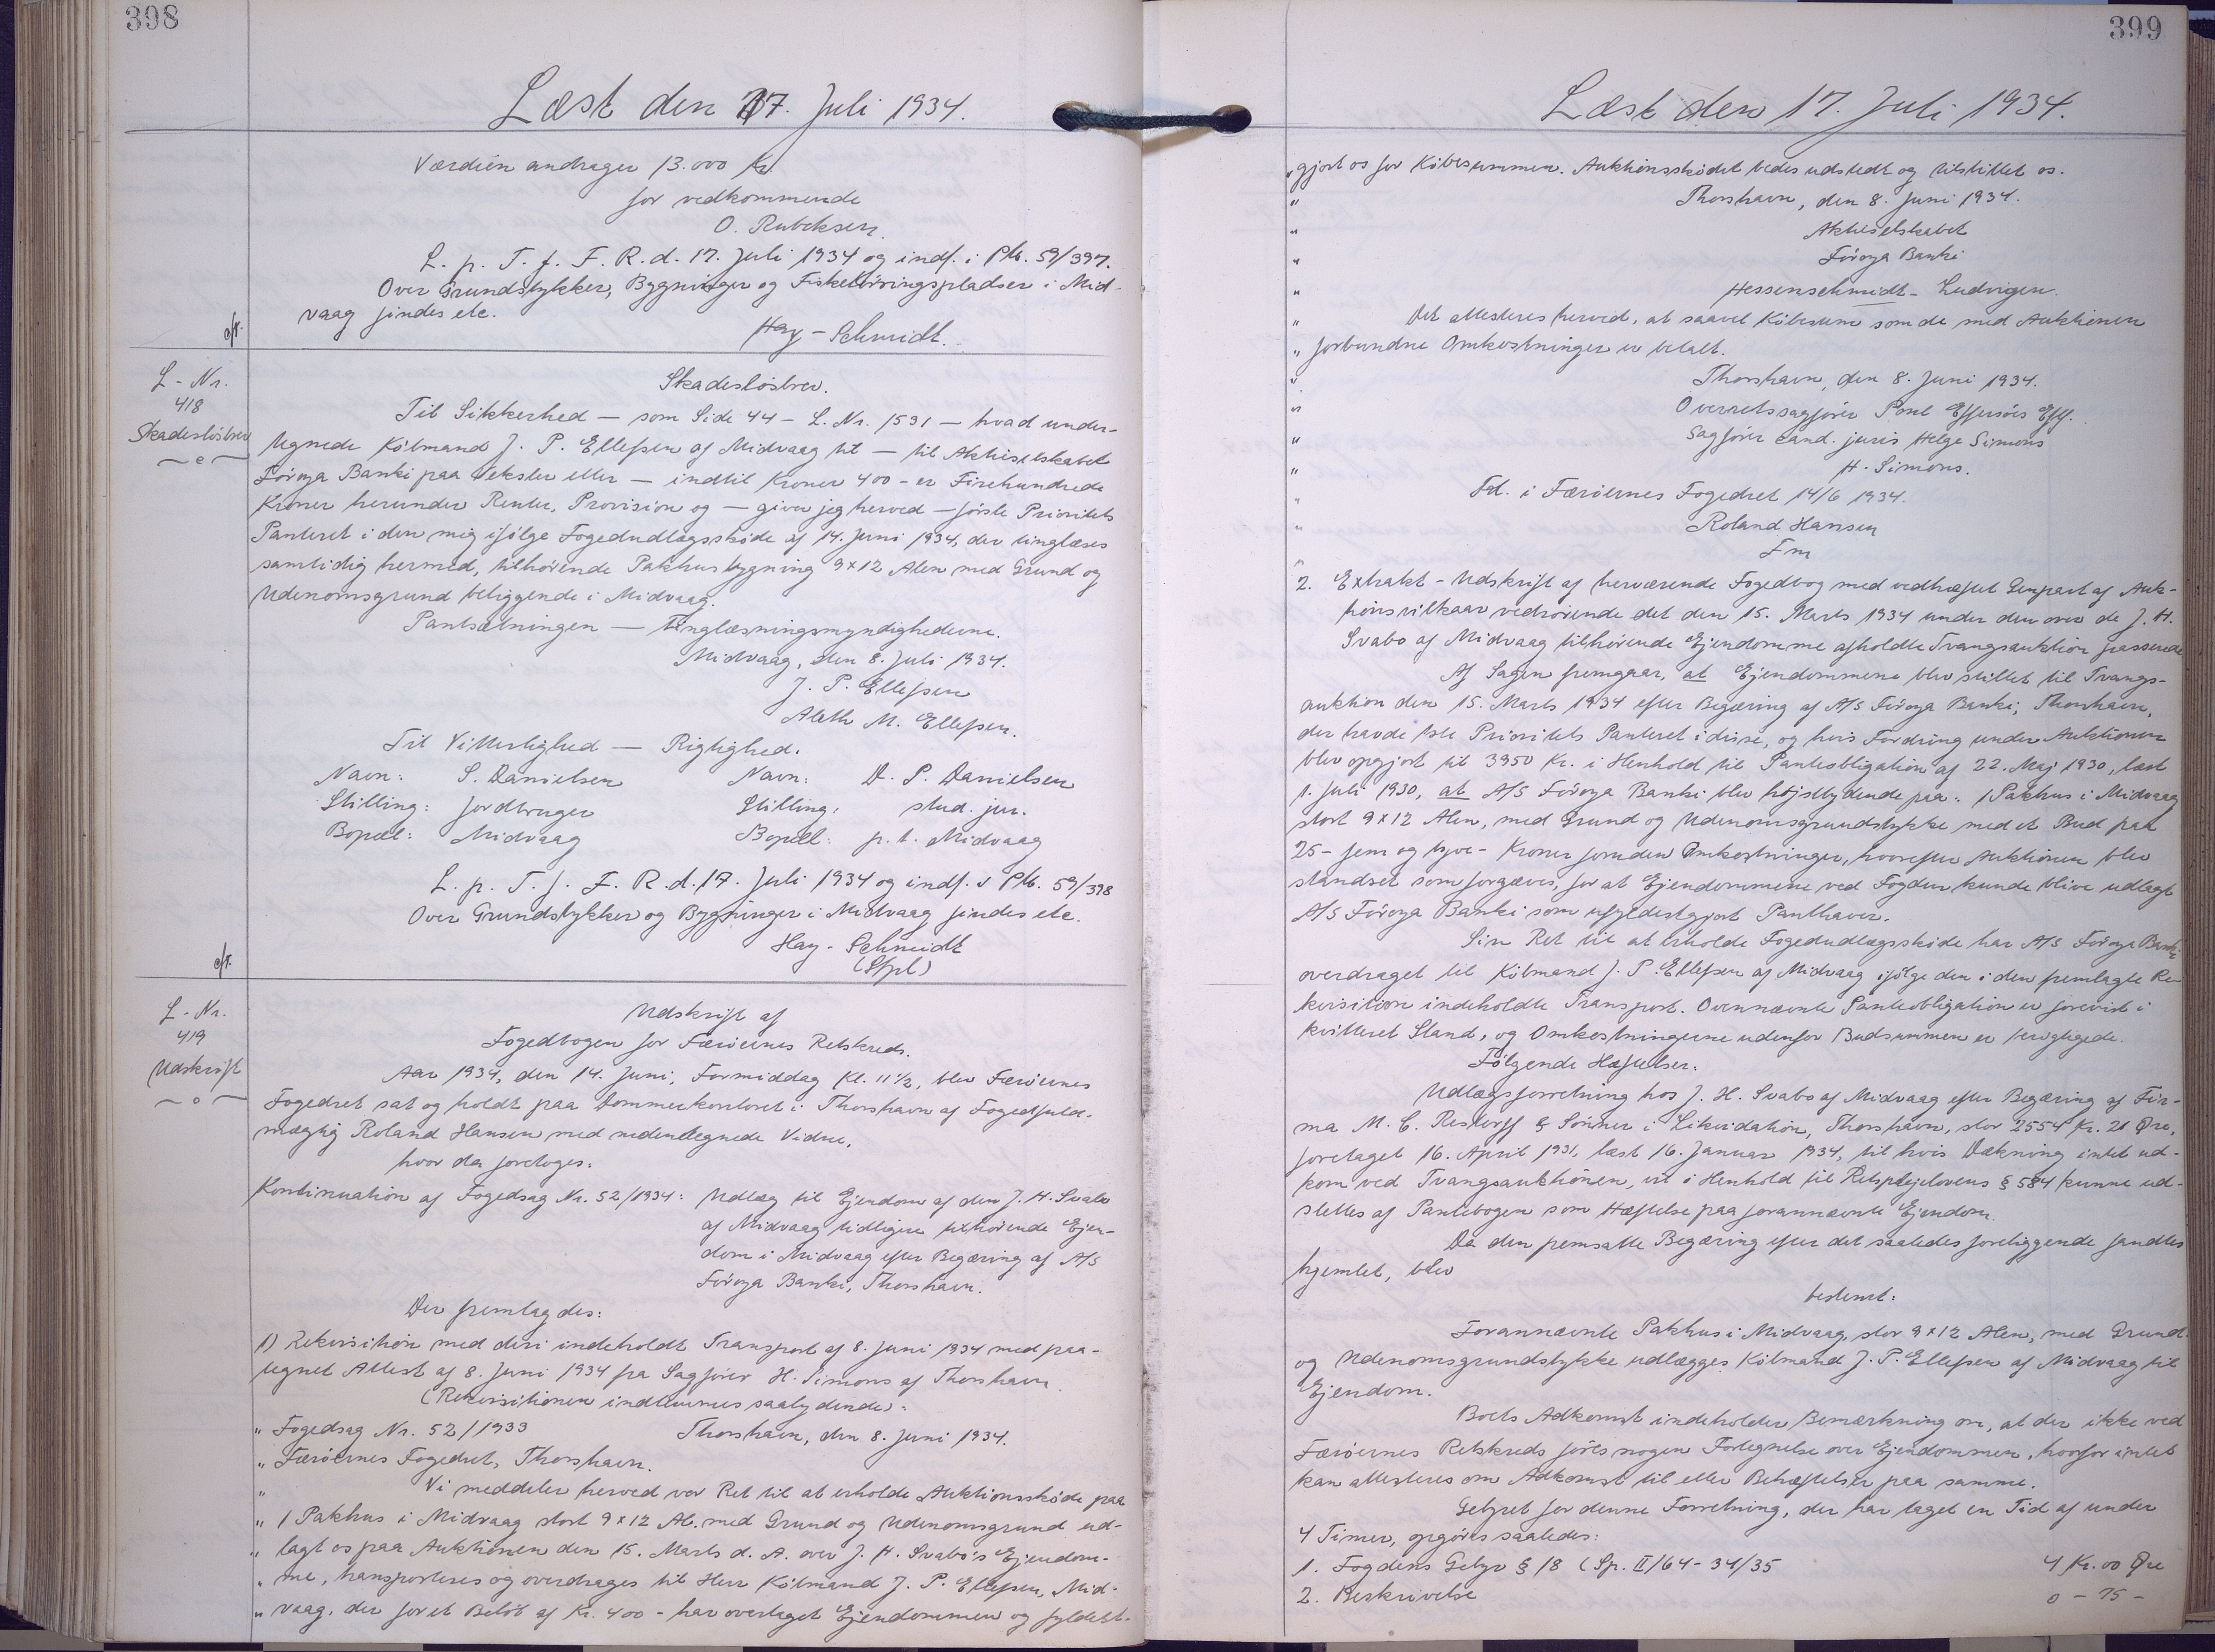 398
Læst den 17. Juli 1934.
Værdien andrager 13.000 Kr.
for vedkommende
O. Rubeksen.
L. p. T. f. F. R. d. 17. Juli 1934 og indf. i Pb. 59/397.
Over Grundstykker, Bygninger og Fisketörringspladser i Mid-
vaag findes etc.
Hay-Schmidt.
L-Nr.
418
Skadeslösbrev
Skadeslösbrev.
Til Sikkerhed — som Side 44 - L. Nr. 1591 — hvad under-
tegnede Köbmand J. P. Ellefsen af Midvaag til — til Aktieselskabet
Föroya Banki paa Veksler eller — indtil Kroner 400 - er Firehundrede
Kroner herunder Renter, Provision og — giver jeg herved — förste Prioritets
Panteret i den mig ifölge Fogedudlægsskøde af 14. Juni 1934, der tinglæses
samtidig hermed, tilhörende Pakhusbygning 9x12 Alen med Grund og
Udenomsgrund beliggende i Midvaag.
Pantsætningen — Tinglæsningsmyndighederne.
Midvaag, den 8. Juli 1934.
J. P. Ellefsen
M. Ellefsen.
Til Vitterlighed — Rigtighed.
Navn: S. Danielsen Navn: D. P. Danielsen
Stilling: Jordbruger Stilling: stud. jur.
Bopæl: Midvaag Bopæl: p. t. Midvaag
L. p. T. f. F. R. d. 17. Juli 1934 og indf. i Pb. 59/398
Over Grundstykker og Bygninger i Midvaag findes etc.
Hay-Schmidt
(Stpl)
L-Nr.
419
Udskrift
Udskrift af
Fogedbogen for Færöernes Retskreds.
Aar 1934, den 14. Juni, Formiddag Kl. 11½, blev Færöernes
Fogedret sat og holdt paa Dommerkontoret i Thorshavn af Fogedfuld-
mægtig Roland Hansen med undertegnede Vidne,
hvor da foretoges:
Kontinuation af Fogedsag Nr. 52/1934: Udlæg til Ejendom af den J. H. Svabo
af Midvaag tidligere tilhörende Ejen-
dom i Midvaag efter Begæring af A/S
Föroya Banki, Thorshavn.
Der fremlagdes:
1) Rekvisition med deri indeholdt Transport af 8. Juni 1934 med paa-
tegnet Attest af 8. Juni 1934 fra Sagförer H. Simons af Thorshavn.
(Rekvisitionen indlemmes saalydende):
" Fogedsag Nr. 52/1933 Thorshavn, den 8. Juni 1934.
" Færöernes Fogedret, Thorshavn.
" Vi meddeler herved vor Ret til at erholde Auktionsskøde paa
" 1 Pakhus i Midvaag stort 9x12 Al. med Grund og Udenomsgrund ud-
" lagt os paa Auktionen den 15. Marts d. A. over J. H. Svabo's Ejendom-
" me, transporteres og overdrages til Herr Köbmand J. P. Ellefsen, Mid-
" vaag, der for et Belöb af Kr. 400 - har overtaget Ejendommen og fyldest-
399
Læst den 17. Juli 1934.
" gjort os for Köbesummen. Auktionsskødet bedes udstedt og tilstillet os.
" Thorshavn, den 8. Juni 1934.
" Aktieselskabet
" Föroya Banki
" Hessenschmidt - Ludvigsen.
" Det attesteres herved, at saavel Köbesum som de med Auktionen
" forbundne Omkostninger er betalt.
" Thorshavn, den 8. Juni 1934.
" Overretssagförer Poul Effersöes Eftf.
" Sagförer cand. juris Helge Simons
" H. Simons.
" Fdl. i Færöernes Fogedret 14/6 1934.
" Roland Hansen
" Fm
2. Extrakt-Udskrift af herværende Fogedbog med vedhæftet Genpart af Auk-
tionsvilkaar vedrörende det den 15. Marts 1934 under den over de J. H.
Svabo af Midvaag tilhörende Ejendomme afholdte Tvangsauktion passerede
Af Sagen fremgaar, at Ejendommene blev stillet til Tvangs-
auktion den 15. Marts 1934 efter Begæring af A/S Föroya Banki, Thorshavn,
der havde 1ste Prioritets Panteret i disse, og hvis Fordring under Auktionen
blev opgjort til 3950 Kr. i Henhold til Panteobligation af 22. Maj 1930, læst
1. Juli 1930, at A/S Föroya Banki blev højstbydende paa: 1 Pakhus i Midvaag
stort 9x12 Alen, med Grund og Udenomsgrundstykke med et Bud paa
25- fem og tyve - Kroner foruden Omkostninger, hvorefter Auktionen blev
standset som forgæves, for at Ejendommene ved Fogden kunde blive udlagt
A/S Föroya Banki som ufyldestgjort Panthaver.
Sin Ret til at erholde Fogedudlægsskøde har A/S Föroya Banki
overdraget til Köbmand J. P. Ellefsen af Midvaag ifölge den i den fremlagte Re-
kvisition indeholdte Transport. Ovennævnte Panteobligation er forevist i
kvitteret Stand, og Omkostningerne udenfor Budsummen er berigtigede.
Følgende Hæftelser:
Udlægsforretning hos J. H. Svabo af Midvaag efter Begæring af Fir-
ma M. C. Restorff & Sönner i Likvidation, Thorshavn, stor 2554 Kr. 21 Øre,
foretaget 16. April 1931, læst 16. Januar 1934, til hvis Dækning intet ud-
kom ved Tvangsauktionen, vil i Henhold til Retsplejelovens § 584 kunne ud-
slettes af Pantebogen som Hæftelse paa forannævnte Ejendom.
Da den fremsatte Begæring efter det saaledes foreliggende fandtes
hjemlet, blev
bestemt:
Forannævnte Pakhus i Midvaag, stor 9x12 Alen, med Grund
og Udenomsgrundstykke udlægges Köbmand J. P. Ellefsen af Midvaag til
Ejendom.
Boets Adkomst indeholder Bemærkning om, at der ikke ved
Færöernes Retskreds föres nogen Fortegnelse over Ejendommen, hvorfor intet
kan attesteres om Adkomst til eller Behæftelser paa samme.
Gebyret for denne Forretning, der har taget en Tid af under
4 Timer, opgöres saaledes:
1. Fogdens Gebyr § 18 (Sp. II/64 - 34/35 4 Kr. 00 Øre
2. Beskrivelse 0 - 75 -